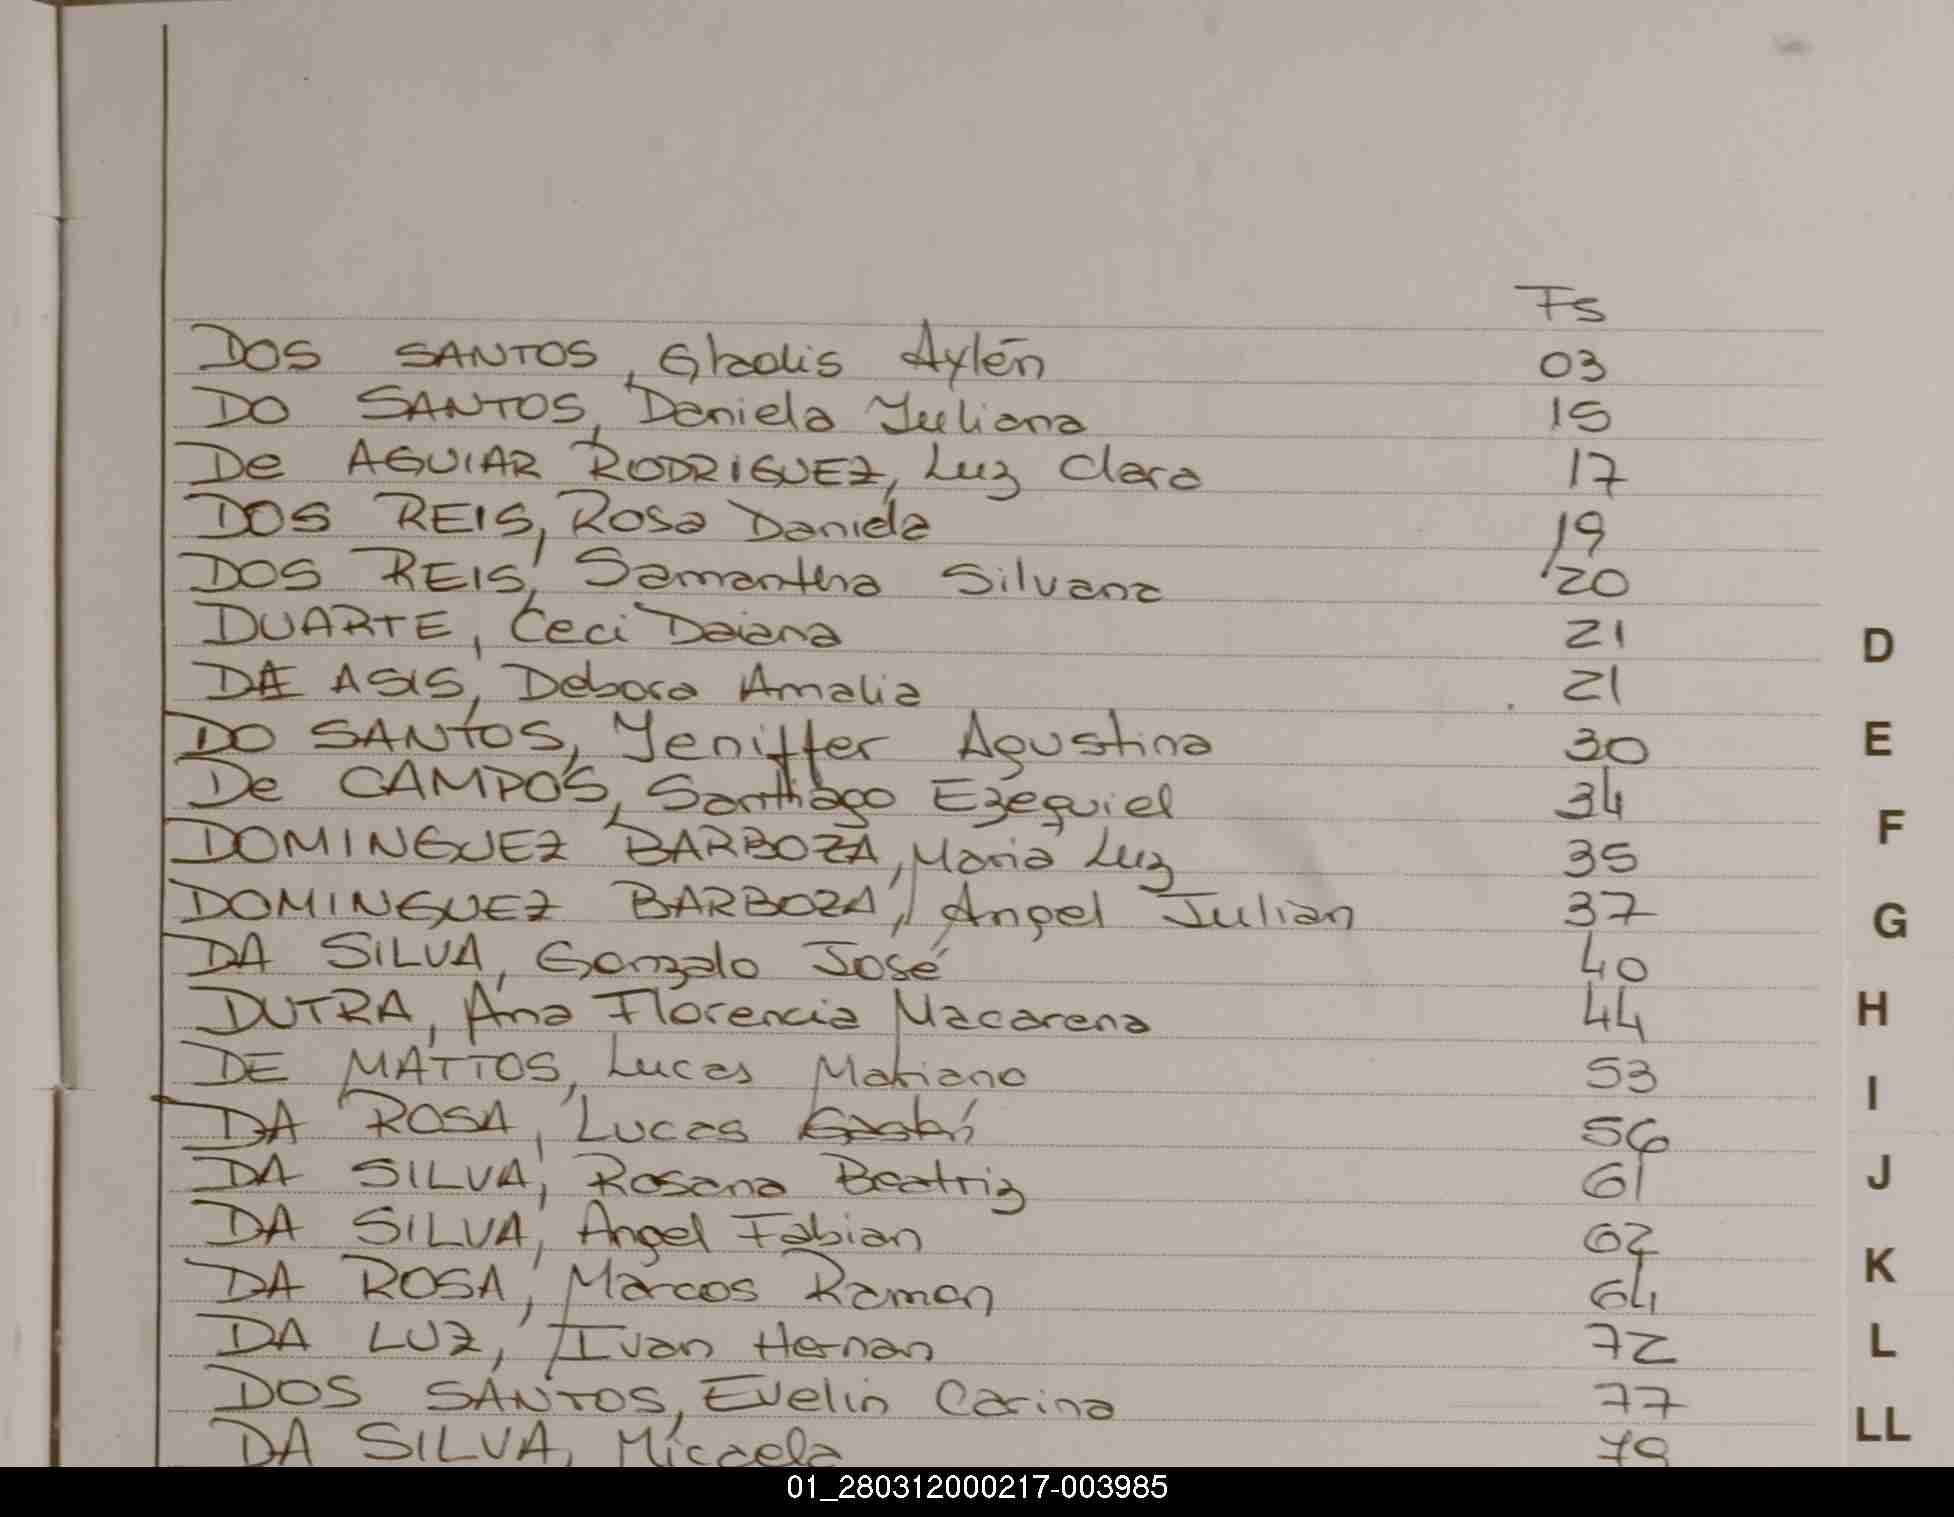 Fs
DOS SANTOS, Gladis Aylén 03
DO SANTOS, Daniela Juliana 15
De AGUIAR RODRIGUEZ, Luz Clara 17
DOS REIS, Rosa Daniela 19
DOS REIS, Samantha Silvana 20
DUARTE, Ceci Daiana 21
DE ASIS, Debora Amalia 21
DO SANTOS, Yeniffer Agustina 30
De CAMPOS, Santhiago Ezequiel 34
DOMINGUEZ BARBOZA, Maria Luz 35
DOMINGUEZ BARBOZA, Angel Julian 37
DA SILVA, Gonzalo José 40
DUTRA, Ana Florencia Macarena 44
DE MATTOS, Lucas Mariano 53
DA ROSA, Lucas Gastón 56
DA SILVA, Rosana Beatriz 61
DA SILVA, Angel Fabian 62
DA ROSA, Marcos Ramon 64
DA LUZ, Ivan Hernan 72
DOS SANTOS, Evelin Carina 77
DA SILVA, Micaela
D
E
F
G
H
I
J
K
L
LL
01_280312000217-003985